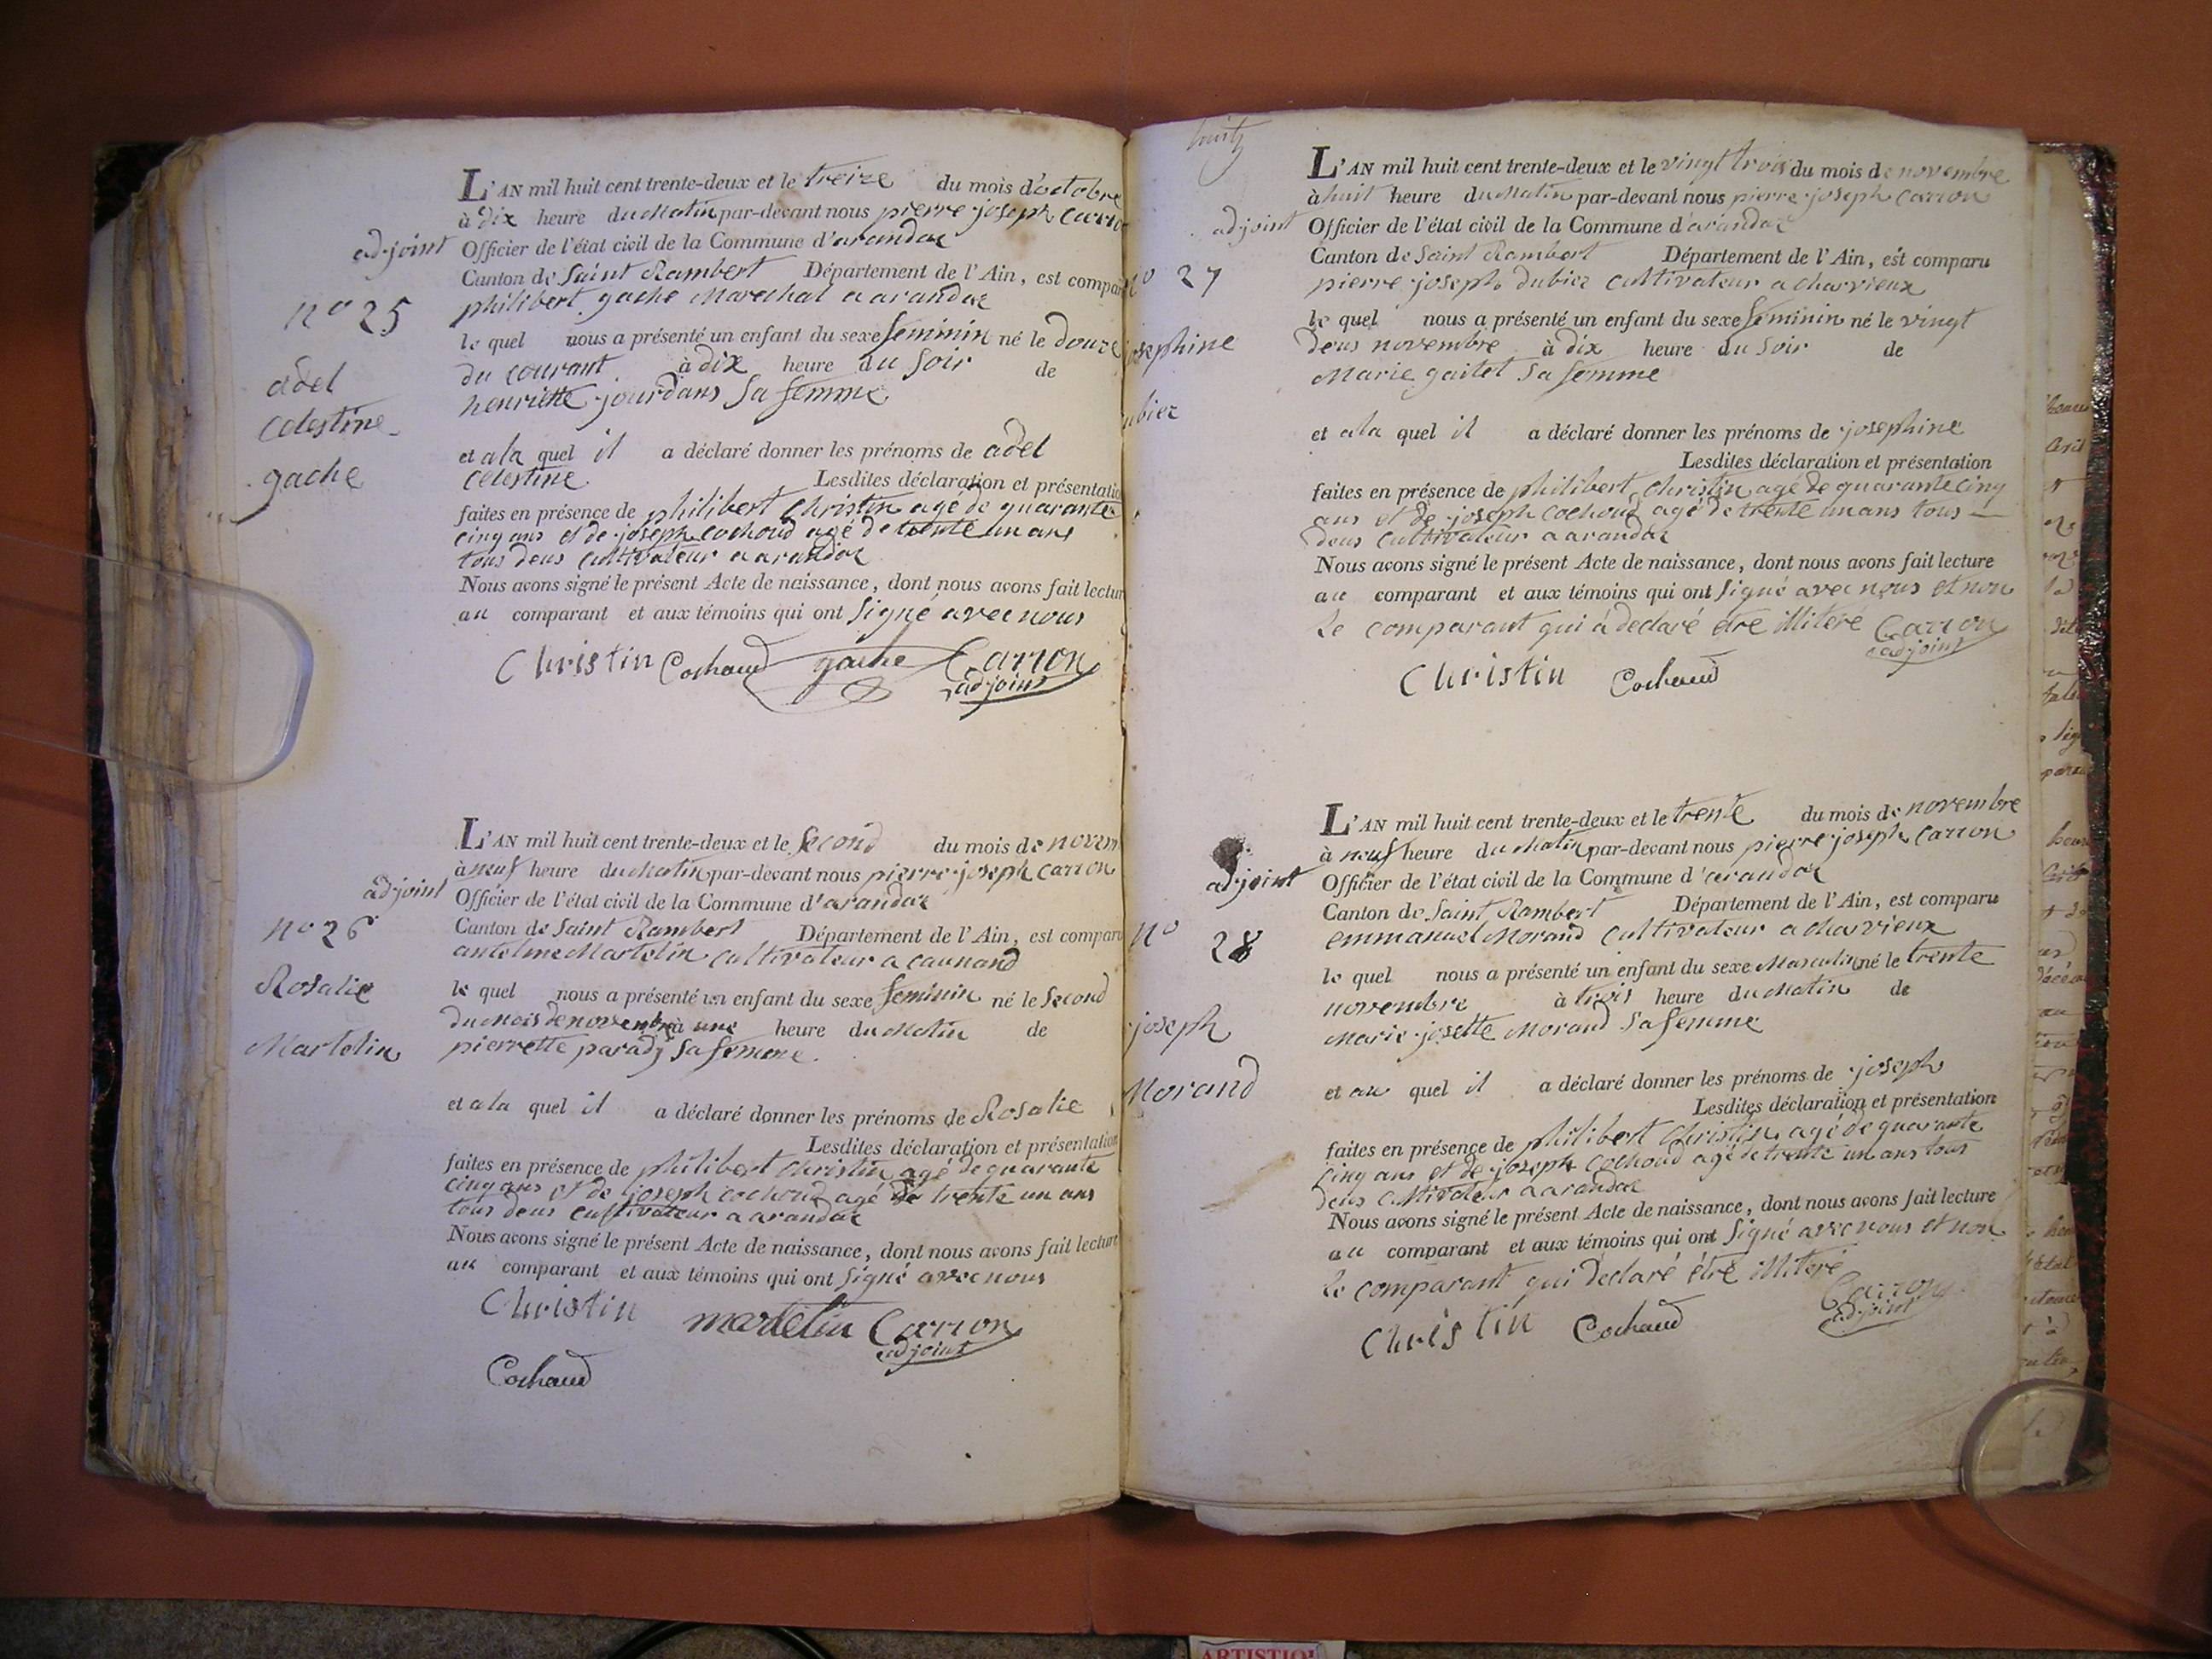 L'AN mil huit cent trente-deux et le treize du mois d'octobre
à dix heure du Matin par-devant nous pierre joseph Carro
adjoint Officier de l'état civil de la Commune d'arandaz
Canton de Saint Rambert Département de l'Ain, est compar
n° 25
philibert gache Marechal a arandaz
le quel nous a présenté un enfant du sexe feminin né le douze
du courant à dix heure du Soir de
adel
henriette jourdans Sa femme
Celestine
et a la quel il a déclaré donner les prénoms de adel
gache
Celestine Lesdites déclaration et présentatio
faites en présence de philibert Christin agé de quarante
cinq ans et de joseph cochoud agé de trente un ans
tous deus cultivateur a arandaz
Nous avons signé le présent Acte de naissance, dont nous avons fait lectur
au comparant et aux témoins qui ont Signé avec nous
Christin Cochaud gache Carron
adjoint
L'AN mil huit cent trente-deux et le Second du mois de novem
à neuf heure du Matin par-devant nous pierre joseph Carron
adjoint Officier de l'état civil de la Commune d'arandaz
n° 26
Canton de Saint Rambert Département de l'Ain, est comparu
antelme Martelin cultivateur a
Rosalie
le quel nous a présenté un enfant du sexe feminin né le Second
du Mois de novembre à une heure du Matin de
Martelin
pierrette paradj Sa femme
et a la quel il a déclaré donner les prénoms de Rosalie
Lesdites déclaration et présentation
faites en présence de philibert Christin agé de quarante
cinq ans et de joseph cochoud agé de trente un ans
tous deus cultivateur a arandaz
Nous avons signé le présent Acte de naissance, dont nous avons fait lecture
au comparant et aux témoins qui ont Signé avec nous
Christin martelin Carron
adjoint
Cochaud
huitz
L'AN mil huit cent trente-deux et le vingt trois du mois de novembre
à huit heure du Matin par-devant nous pierre joseph Carron
adjoint Officier de l'état civil de la Commune d'arandaz
Canton de Saint Rambert Département de l'Ain, est comparu
n° 27
pierre joseph dubiez cultivateur a charvieux
le quel nous a présenté un enfant du sexe feminin né le vingt
osephine
deus novembre à dix heure du Soir de
Marie gaitet Sa femme
ubiez
et a la quel il a déclaré donner les prénoms de josephine
Lesdites déclaration et présentation
faites en présence de philibert Christin agé de quarante cinq
ans et de joseph cochoud agé de trente un ans tous
deus cultivateur a arandaz
Nous avons signé le présent Acte de naissance, dont nous avons fait lecture
au comparant et aux témoins qui ont Signé avec nous et non
le comparant qui à declaré etre illiteré Carron
adjoint
Christin Cochaud
L'AN mil huit cent trente-deux et le trente du mois de novembre
à neuf heure du Matin par-devant nous pierre joseph Carron
adjoint Officier de l'état civil de la Commune d'arandaz
Canton de Saint Rambert Département de l'Ain, est comparu
n° 28
emmanuel Morand cultivateur a charvieux
le quel nous a présenté un enfant du sexe Masculin né le trente
novembre à trois heure du Matin de
joseph
Marie josette Morand Sa femme
Morand
et au quel il a déclaré donner les prénoms de joseph
Lesdites déclaration et présentation
faites en présence de philibert Christin agé de quarante
cinq ans et de joseph cochoud agé de trente un ans tous
deus cultivateur a arandaz
Nous avons signé le présent Acte de naissance, dont nous avons fait lecture
au comparant et aux témoins qui ont Signé avec nous et non
le comparant qui déclaré étre illiteré
Carron
adjoint
Christin Cochaud